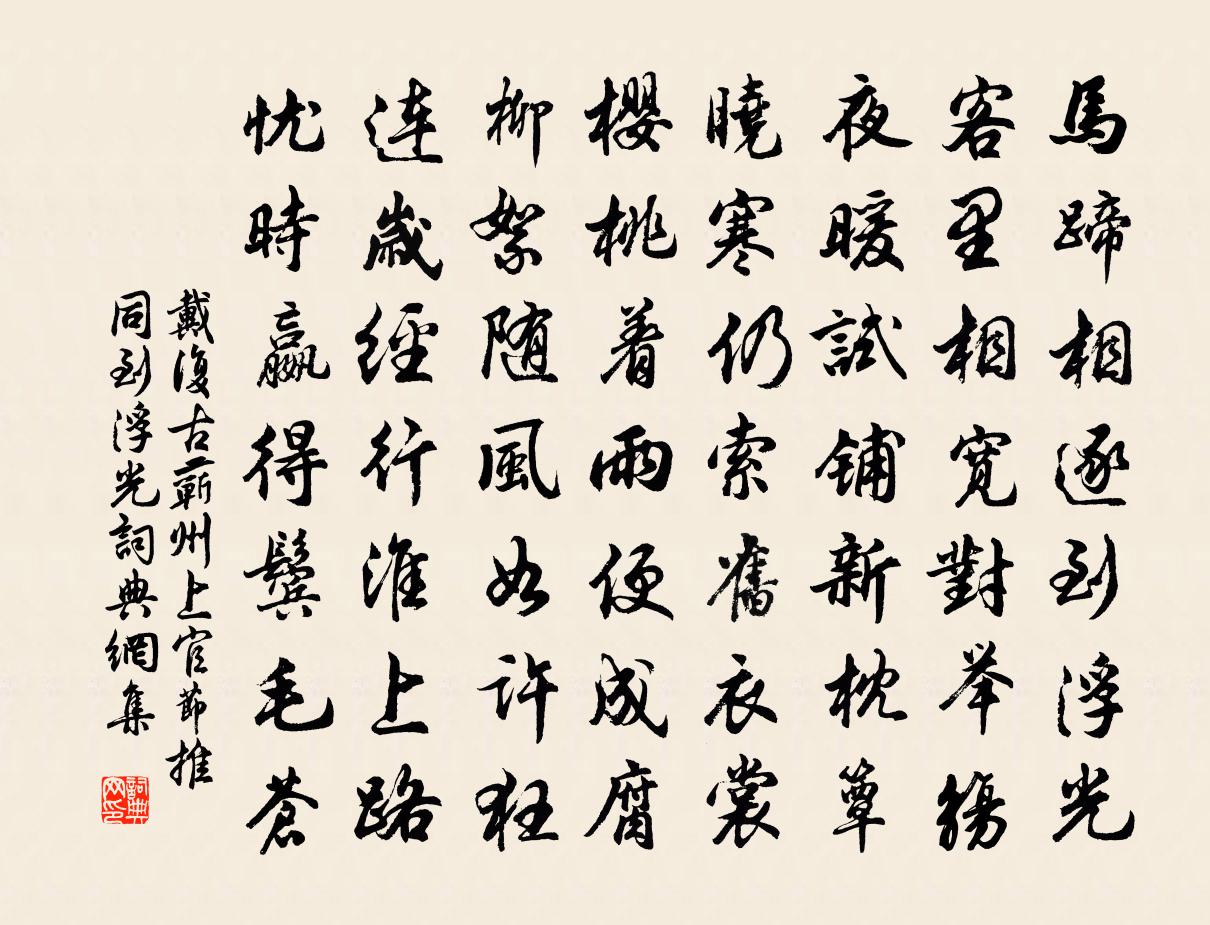 馬蹄相逐到浮光
客里相寬對举觴
夜暖試鋪新枕簟
曉寒仍索舊衣裳
櫻桃着雨便成腐
柳絮随風如許狂
连歲經行淮上路
忧時贏得鬓毛蒼
戴復古蕲州上官節推
同到浮光詞典網集
詞典
网印